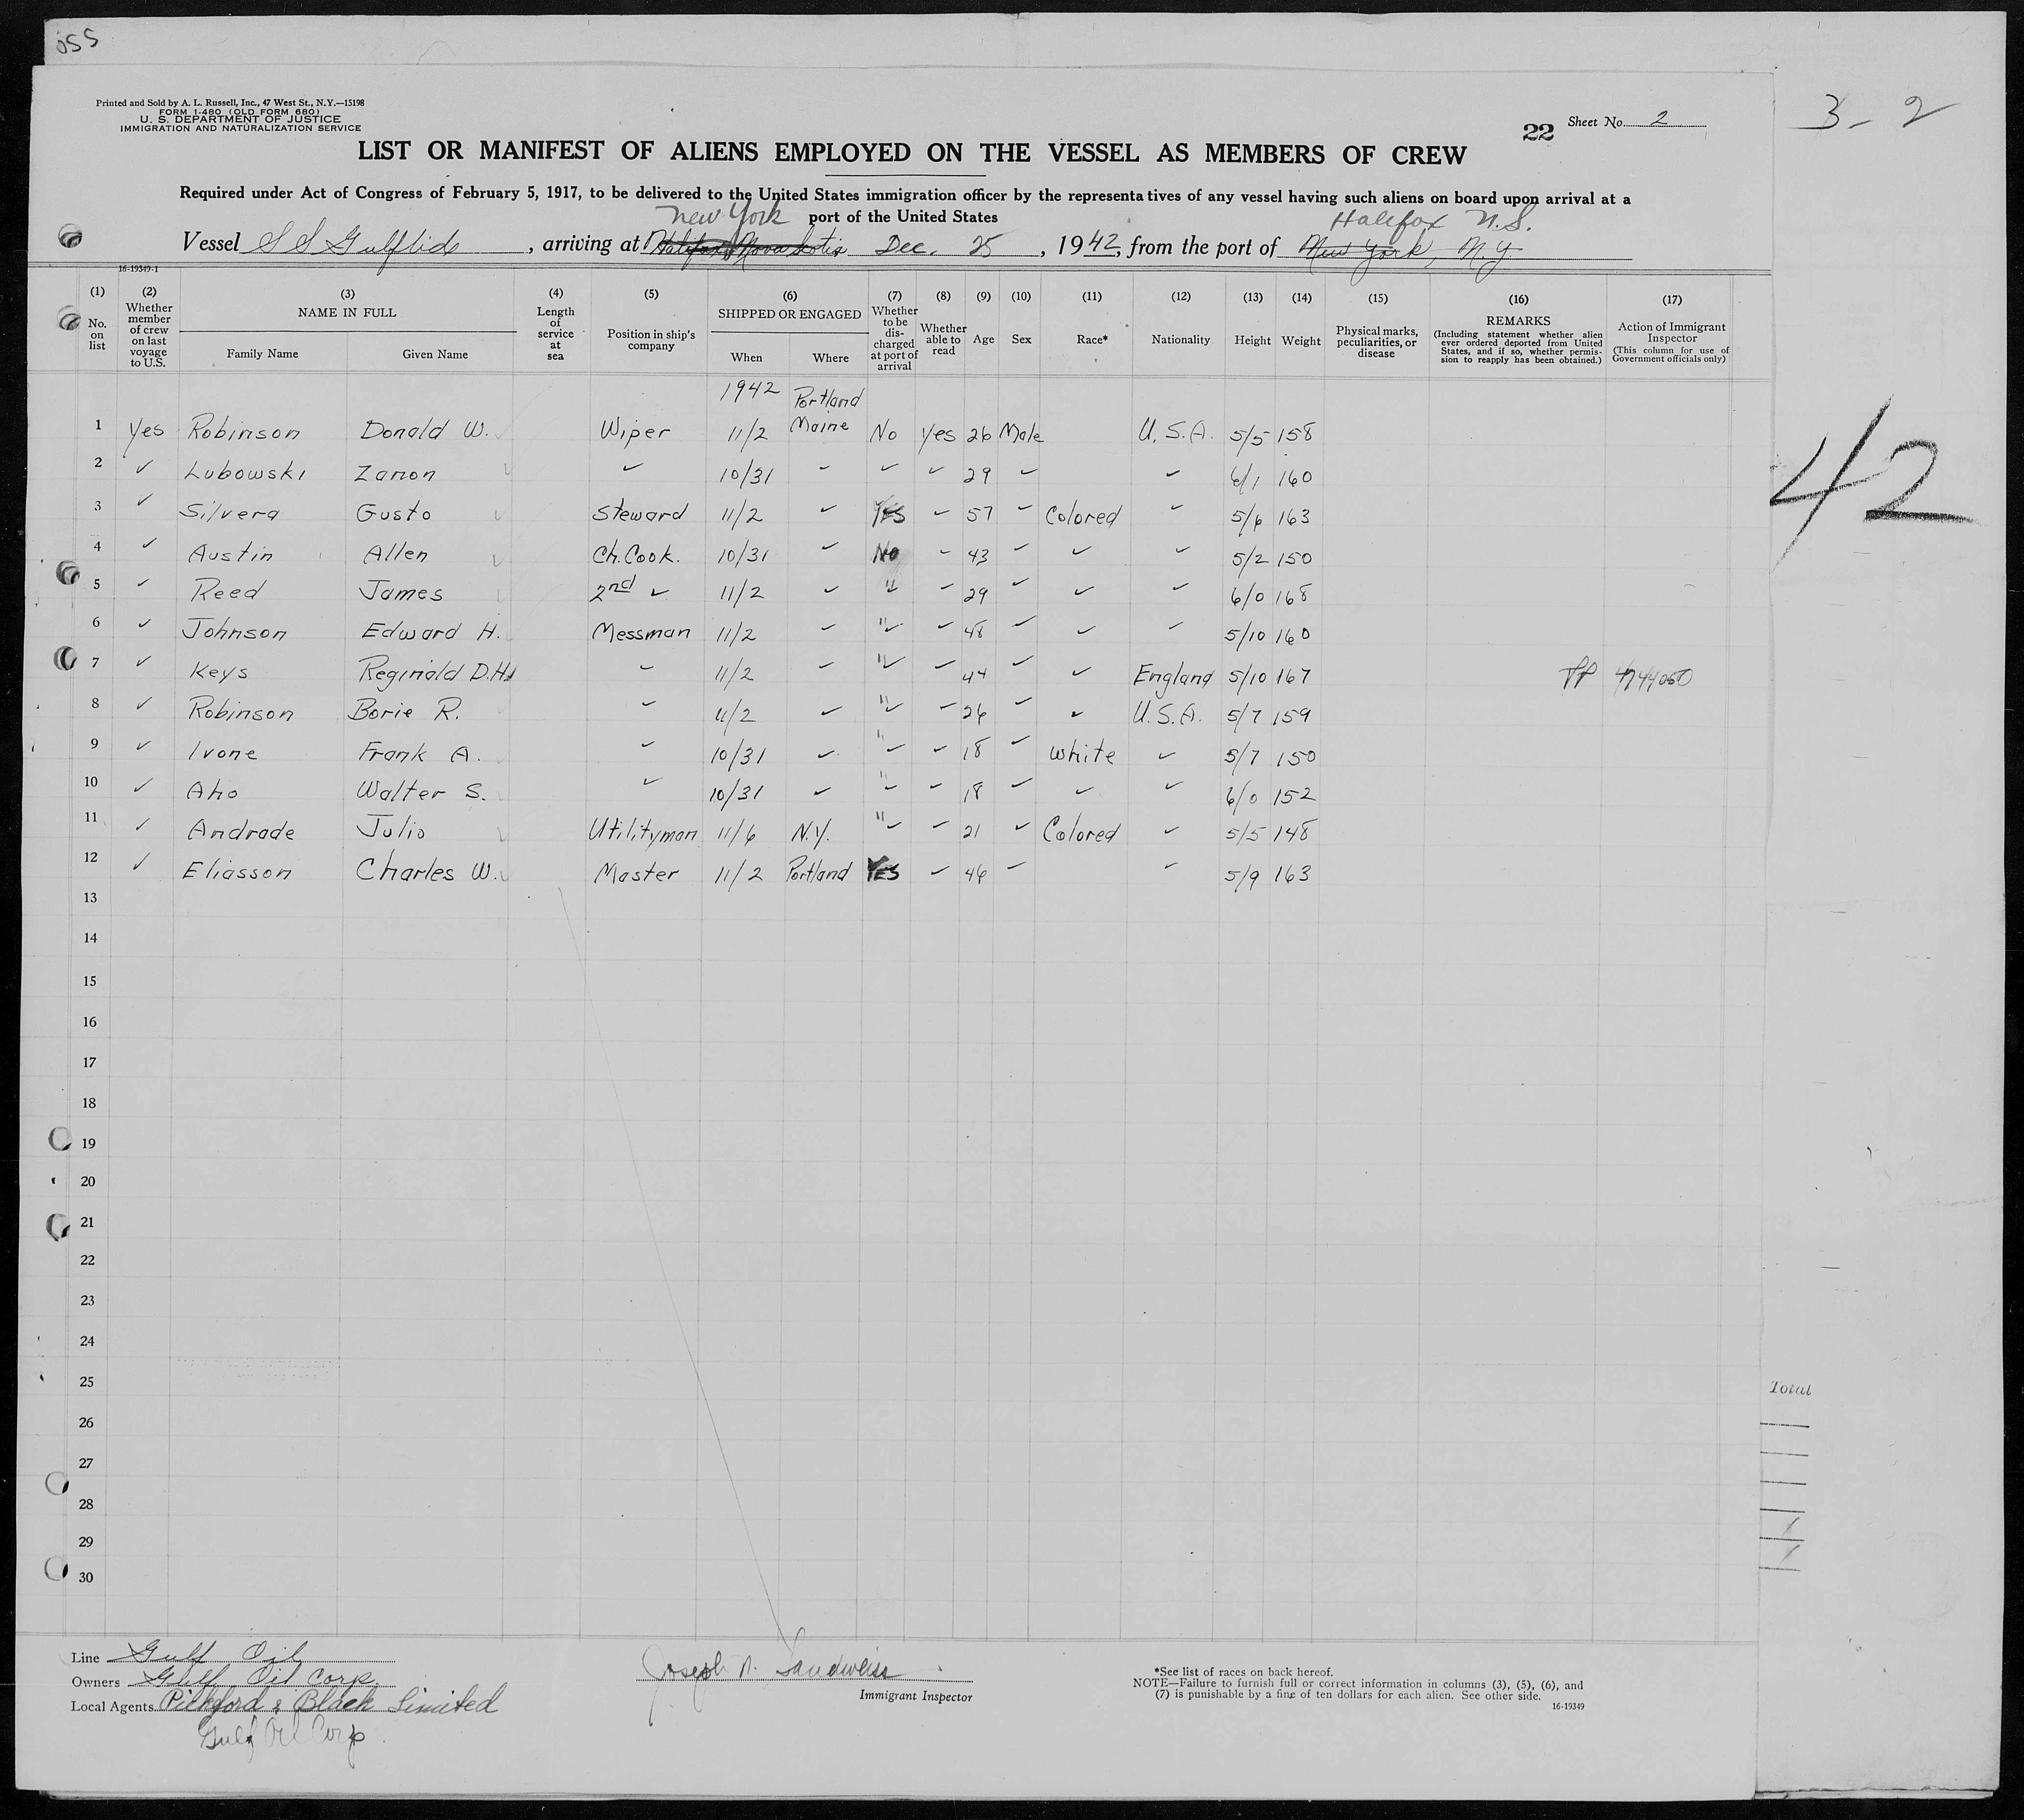 055
3 - 2
Printed and Sold by A. L. Russell, Inc., 47 West St., N.Y.—15198
FORM I-480 (OLD FORM 680)
U. S. DEPARTMENT OF JUSTICE
IMMIGRATION AND NATURALIZATION SERVICE
22 Sheet No. 2
LIST OR MANIFEST OF ALIENS EMPLOYED ON THE VESSEL AS MEMBERS OF CREW
Required under Act of Congress of February 5, 1917, to be delivered to the United States immigration officer by the representatives of any vessel having such aliens on board upon arrival at a
port of the United States
New York Halifax N.S.
Vessel S S Gulftide, arriving at Halifax, Nova Scotia Dec. 25, 1942, from the port of New York, N.Y.
16-19349-1
(1) No. on list (2) Whether member of crew on last voyage to U.S. (3) NAME IN FULL Family Name Given Name (4) Length of service at sea (5) Position in ship's company (6) SHIPPED OR ENGAGED When Where (7) Whether to be discharged at port of arrival (8) Whether able to read (9) Age (10) Sex (11) Race* (12) Nationality (13) Height (14) Weight (15) Physical marks, peculiarities, or disease (16) REMARKS (Including statement whether alien ever ordered deported from United States, and if so, whether permission to reapply has been obtained.) (17) Action of Immigrant Inspector (This column for use of Government officials only)
1942 Portland
1 Yes Robinson Donald W. Wiper 11/2 Maine No Yes 26 Male U.S.A. 5/5 158
2 ✓ Lubowski Zanon ✓ 10/31 ✓ ✓ ✓ 29 ✓ ✓ 6/1 160
3 ✓ Silvera Gusto Steward 11/2 ✓ YES ✓ 57 ✓ Colored ✓ 5/6 163
4 ✓ Austin Allen Ch. Cook. 10/31 ✓ No ✓ 43 ✓ ✓ ✓ 5/2 150
5 ✓ Reed James 2nd ✓ 11/2 ✓ " ✓ 29 ✓ ✓ ✓ 6/0 168
6 ✓ Johnson Edward H. Messman 11/2 ✓ " ✓ 48 ✓ ✓ ✓ 5/10 160
7 ✓ Keys Reginald D.H. ✓ 11/2 ✓ " ✓ 44 ✓ ✓ England 5/10 167
8 ✓ Robinson Borie R. ✓ 11/2 ✓ " ✓ 26 ✓ ✓ U.S.A. 5/7 159
9 ✓ Ivone Frank A. ✓ 10/31 ✓ " ✓ 18 ✓ White ✓ 5/7 150
10 ✓ Aho Walter S. ✓ 10/31 ✓ " ✓ 18 ✓ ✓ ✓ 6/0 152
11 ✓ Andrade Julio Utilityman 11/6 N.Y. " ✓ 21 ✓ Colored ✓ 5/5 148
12 ✓ Eliasson Charles W. Master 11/2 Portland YES ✓ 46 ✓ ✓ 5/9 163
13
14
15
16
17
18
19
20
21
22
23
24
25
26
27
28
29
30
42
Total
Line Gulf Oil
Owners Gulf Oil Corp.
Local Agents Pickford & Black Limited
Gulf Oil Corp
Joseph N. Sandweiss
Immigrant Inspector
*See list of races on back hereof.
NOTE—Failure to furnish full or correct information in columns (3), (5), (6), and
(7) is punishable by a fine of ten dollars for each alien. See other side.
16-19349